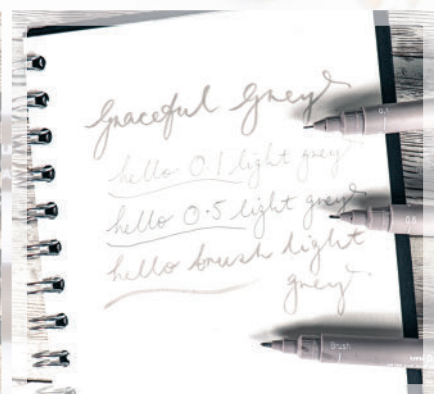 Graceful Grey
hello 0.1 light grey
hello 0.5 light grey
hello brush light
grey
0.1
0.5
Brush